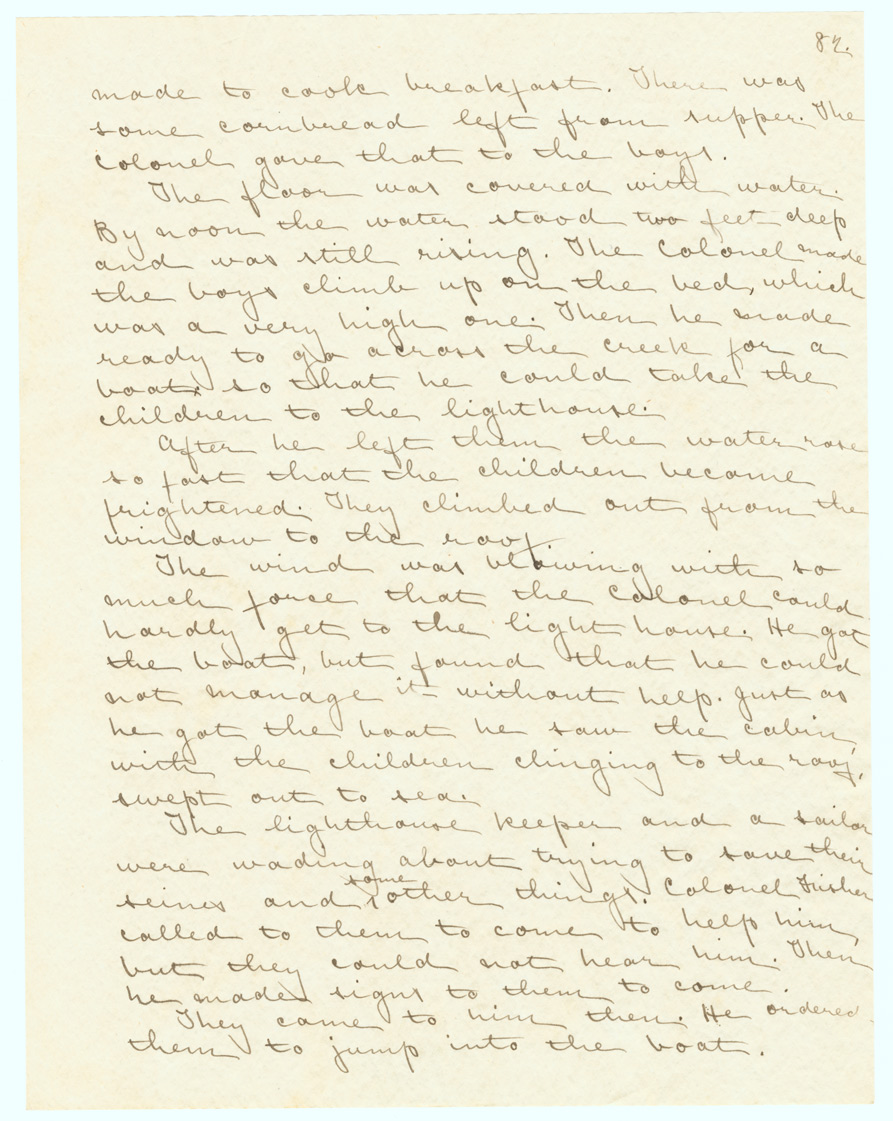 82.
made to cook breakfast. There was
some cornbread left from supper. The
colonel gave that to the boys.
The floor was covered with water.
By noon the water stood two feet deep
and was still rising. The Colonel made
the boys climb up on the bed, which
was a very high one. Then he made
ready to go across the creek for a
boat so that he could take the
children to the lighthouse.
After he left them the water rose
so fast that the children became
frightened. They climbed out from the
window to the roof.
The wind was blowing with so
much force that the Colonel could
hardly get to the light house. He got
the boat, but found that he could
not manage it without help. Just as
he got the boat he saw the cabin,
with the children clinging to the roof,
swept out to sea.
The lighthouse keeper and a sailor
were wading about trying to save their
seines and some other things. Colonel Fisher
called to them to come to help him,
but they could not hear him. Then
he made signs to them to come.
They came to him then. He ordered
them to jump into the boat.